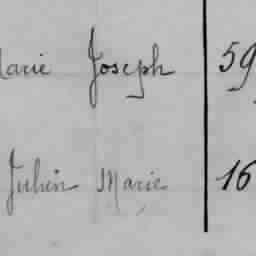 Marie Joseph 59
Julien Marie 16